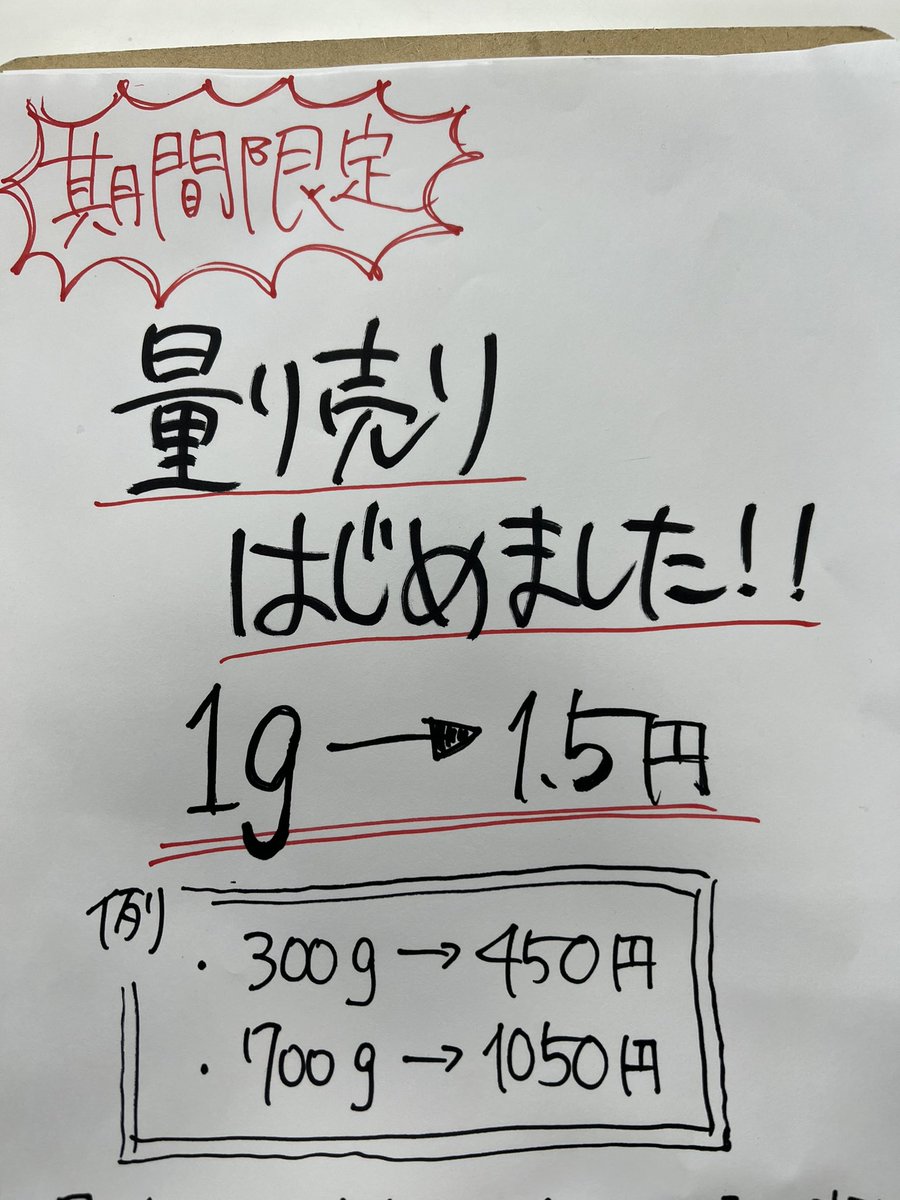 期間限定
量り売り
はじめました!!
1g→1.5円
例)
・300g→450円
・700g→1050円